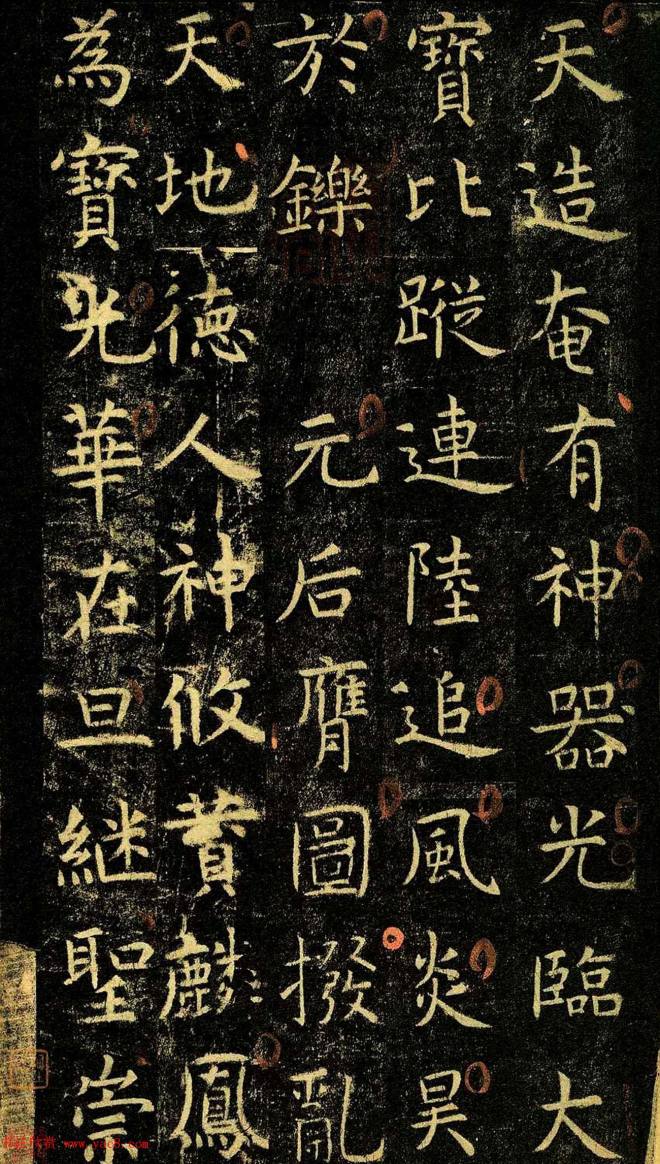 天造奄有神器光臨大
寶比蹤連陸追風炎昊
於鑠 元后膺圖撥亂
天地徳人神攸賛麟鳳
為寶光華在旦継聖崇
www.yac8.com